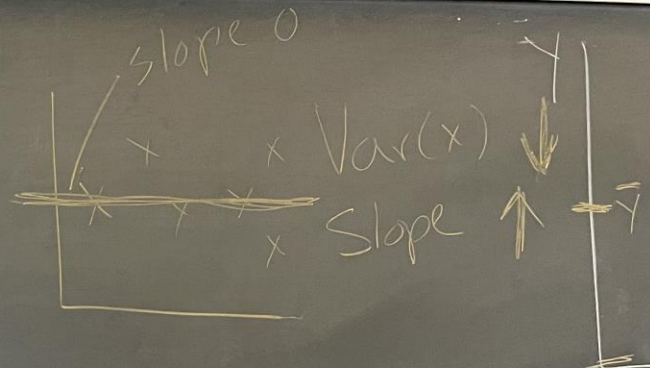 slope 0
Y
Var(x) ↓
Slope ↑
Ȳ